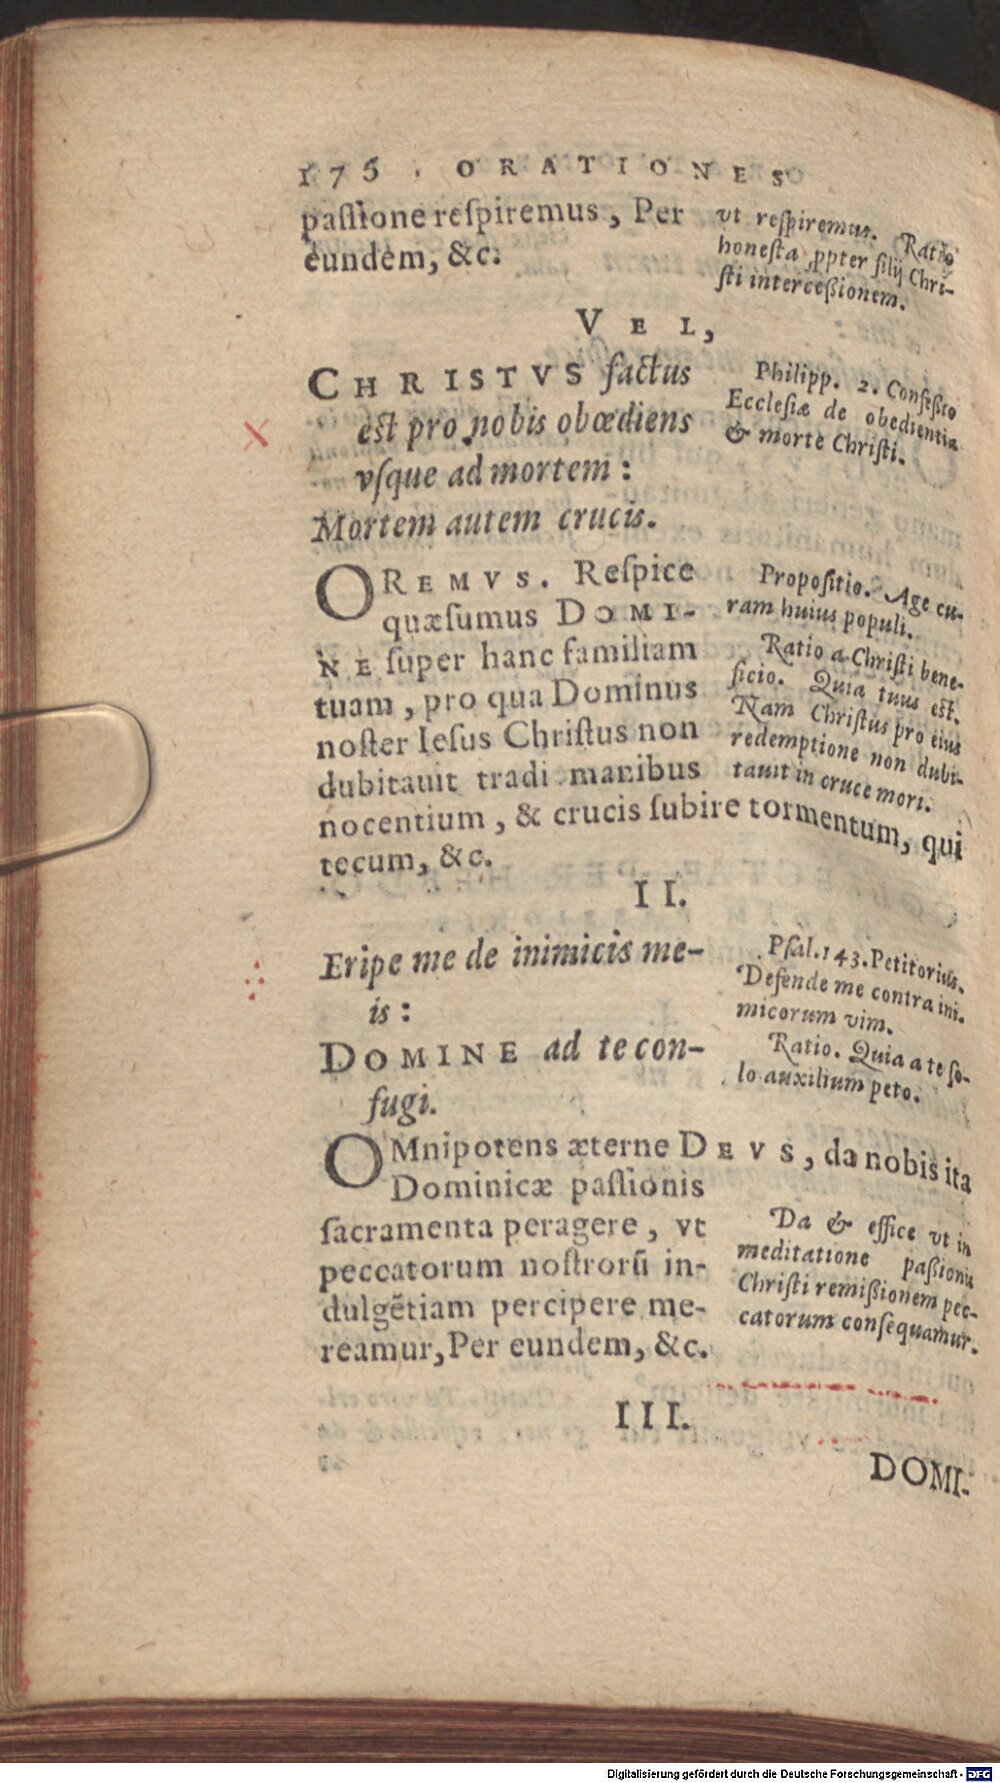 176 . ORATIONES
paſſione reſpiremus, Per
eundem, &c.
vt reſpiremus. Ratio
honeſta ꝓpter filij Chri-
ſti interceßionem.
VEL,
CHRISTVS factus
est pro nobis obœdiens
vſque ad mortem:
Mortem autem crucis.
Philipp. 2. Confeßio
Eccleſiæ de obedientia
& morte Chriſti.
OREMVS. Reſpice
quæſumus DOMI-
NE ſuper hanc familiam
tuam, pro qua Dominus
noſter Ieſus Chriſtus non
dubitauit tradi manibus
nocentium, & crucis ſubire tormentum, qui
tecum, &c.
Propoſitio. Age cu-
ram huius populi.
Ratio a Chriſti bene-
ficio. Quia tuus est.
Nam Chriſtus pro eius
redemptione non dubi-
tauit in cruce mori.
II.
Eripe me de inimicis me-
is:
DOMINE ad te con-
fugi.
Pſal. 143. Petitorius.
Defende me contra ini-
micorum vim.
Ratio. Quia a te ſo-
lo auxilium peto.
OMnipotens æterne DEVS, da nobis ita
Dominicæ paſſionis
ſacramenta peragere, vt
peccatorum noſtrorū in-
dulgētiam percipere me-
reamur, Per eundem, &c.
Da & effice vt in
meditatione paßionis
Chriſti remißionem pec-
catorum conſequamur.
III.
DOMI-
Digitalisierung gefördert durch die Deutsche Forschungsgemeinschaft - DFG